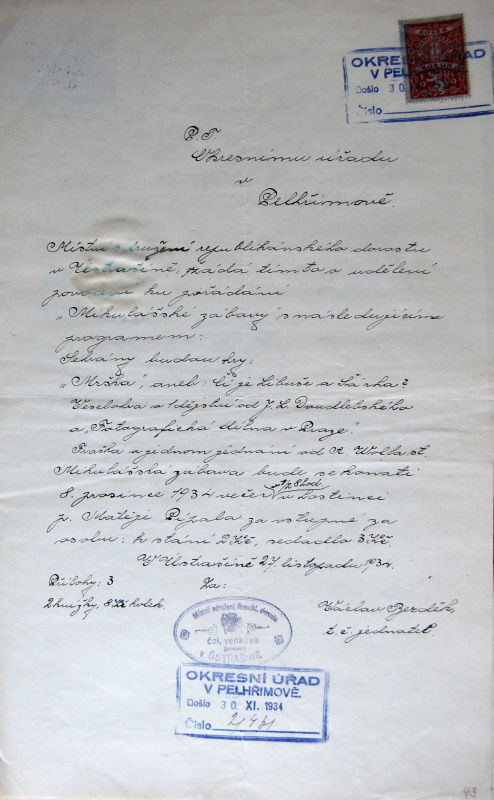 KOLEK
8
OKRESNÍ ÚŘAD
V PELHŘIMOVĚ
Došlo 30.
Číslo
P. T.
Okresnímu úřadu
v
Pelhřimově.
Místní sdružení republikánského dorostu
v Ústrašíně, žádá tímto o udělení
povolení ku pořádání
„Mikulášské zábavy" s následujícím
programem:
Sehrány budou hry:
„Mrška", aneb: Čí je Libuše a Bárka?
Veselohra o 1 dějství od J. L. Doudlebského
a „Fotografická dílna v Praze"
Fraška v jednom jednání od A. Wolba st.
Mikulášská zábava bude se konati
8. prosince 1934 večer v 1/2 8 hod. v hostinci
p. Matěje Pípala za vstupné za
osobu: k stání 2 Kč, sedadlo 3 Kč
V Ústrašíně 27 listopadu 1934.
Přílohy: 3 Za:
2 knížky, 8 Kč kolek.
Václav Bezděk,
t. č. jednatel.
Místní sdružení republ. dorostu
čsl. venkova
v ÚSTRAŠÍNĚ
OKRESNÍ ÚŘAD
V PELHŘIMOVĚ.
Došlo 30. XI. 1934
Číslo
43